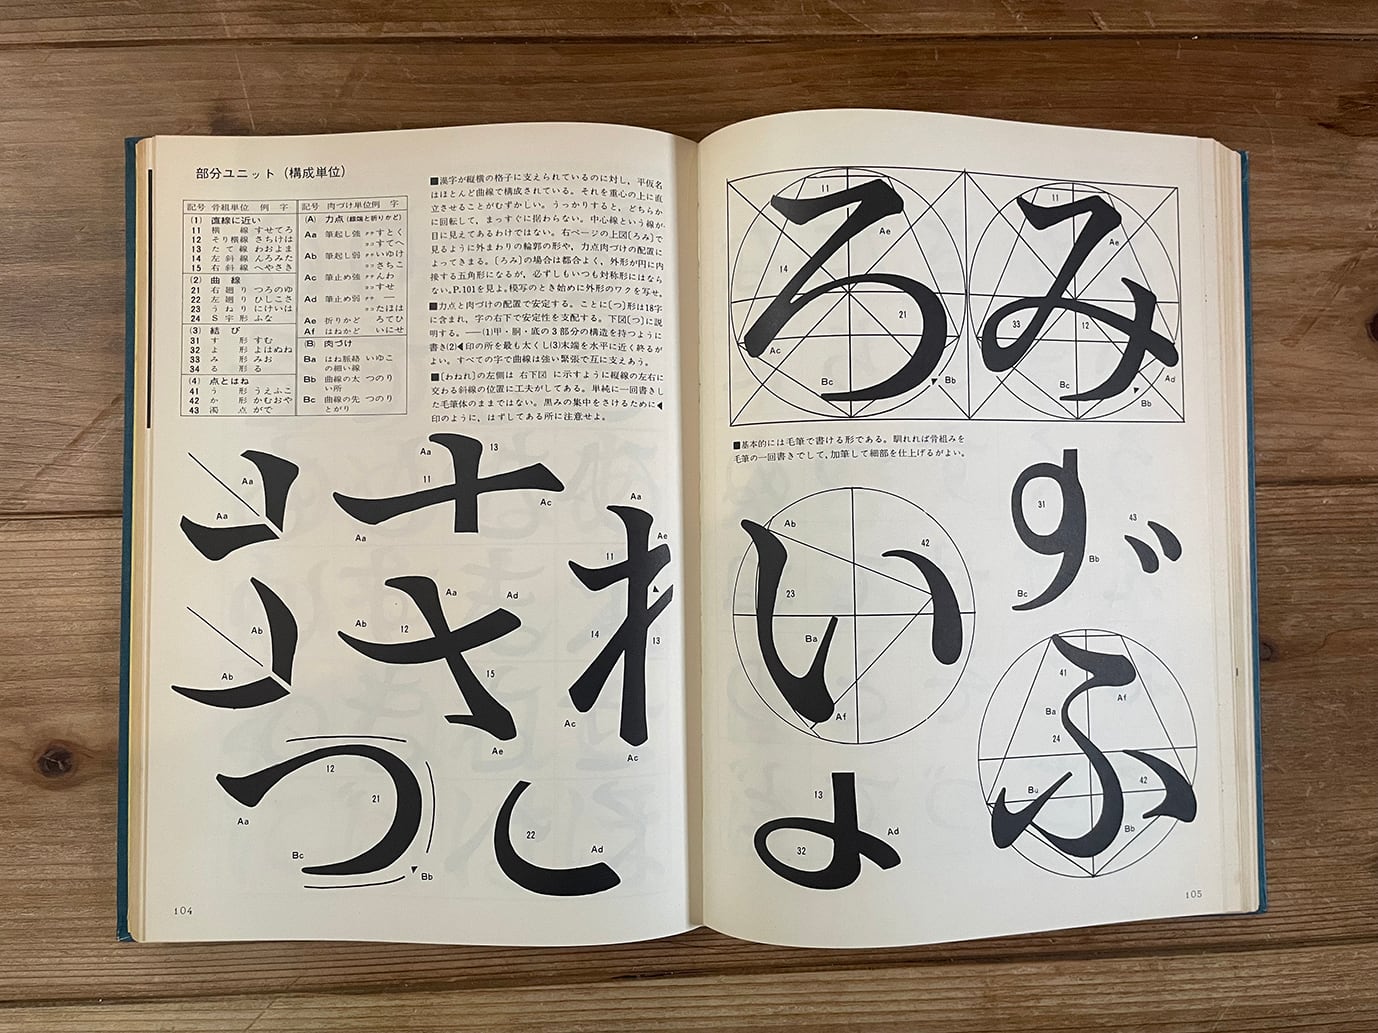 部分ユニット（構成単位）
記号 骨組単位 例 字
(1) 直線に近い
11 横 線 すせてろ
12 そり横線 さちけは
13 たて線 わおよま
14 左斜線 んろみた
15 右斜線 へやさき
(2) 曲 線
21 右廻り つろのゆ
22 左廻り ひしこさ
23 うねり にけいは
24 S字形 ふな
(3) 結 び
31 す 形 すむ
32 よ 形 よはぬね
33 み 形 みお
34 る 形 る
(4) 点とはね
41 う 形 うえふこ
42 か 形 かむおや
43 濁 点 がで
記号 肉づけ単位例 字
(A) 力点(線端と折りかど)
Aa 筆起し強 タテ すとく
ヨコ すてへ
Ab 筆起し弱 タテ いゆけ
ヨコ さちこ
Ac 筆止め強 タテ んわ
ヨコ すせ
Ad 筆止め弱 タテ ―
ヨコ たはほ
Ae 折りかど ろてひ
Af はねかど いにせ
(B) 肉づけ
Ba はね脈絡 いゆこ
の細い線
Bb 曲線の太 つのり
い所
Bc 曲線の先 つのり
とがり
■漢字が縦横の格子に支えられているのに対し，平仮名
はほとんど曲線で構成されている。それを重心の上に直
立させることがむずかしい。うっかりすると，どちらか
に回転して，まっすぐに据わらない。中心線という線が
目に見えてあるわけではない。右ページの上図〔ろみ〕で
見るように外まわりの輪郭の形や，力点肉づけの配置に
よってきまる。〔ろみ〕の場合は都合よく，外形が円に内
接する五角形になるが，必ずしもいつも対称形にはなら
ない。P.101を見よ。模写のとき始めに外形のワクを写せ。
■力点と肉づけの配置で安定する。ことに〔つ〕形は18字
に含まれ，字の右下で安定性を支配する。下図〔つ〕に説
明する。――(1)甲・胴・底の3部分の構造を持つように
書き(2)◀印の所を最も太くし(3)末端を水平に近く終るが
よい。すべての字で曲線は強い緊張で互に支えあう。
■〔わねれ〕の左側は 右下図 に示すように縦線の左右に
交わる斜線の位置に工夫がしてある。単純に一回書きし
た毛筆体のままではない。黒みの集中をさけるために◀
印のように，はずしてある所に注意せよ。
Aa
Aa
Ab
Ab
Aa
13
11
Ac
Aa
Aa
Ad
Ab
12
15
Ae
Aa
Ae
11
14
13
Ac
Ac
つ
12
21
Aa
Bc
Bb
し
22
Ad
104
ろ
11
Ae
14
21
Ac
Bc
Bb
み
11
Ae
33
12
Ad
Bc
Bb
■基本的には毛筆で書ける形である。馴れれば骨組みを
毛筆の一回書きでして，加筆して細部を仕上げるがよい。
い
Ab
42
23
Ba
Af
31
43
Bb
Bc
ふ
41
Af
Ba
24
42
Bb
13
Ad
32
105